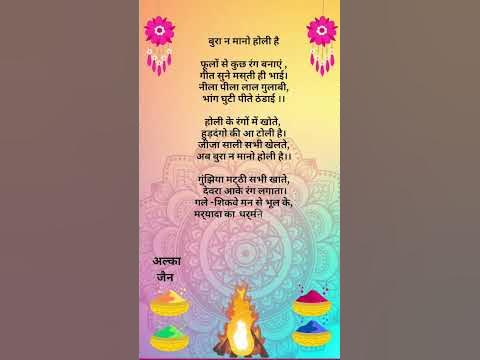 बुरा न मानो होली है
फूलों से कुछ रंग बनाएं ,
गीत सुने मस्ती ही भाई।
नीला पीला लाल गुलाबी,
भांग घुटी पीते ठंडाई ।।
होली के रंगों में खोते,
हुड़दंगो की आ टोली है।
जीजा साली सभी खेलते,
अब बुरा न मानो होली है।।
गुंझिया मट्ठी सभी खाते,
देवरा आके रंग लगाता।
गले -शिकवे मन से भूल के,
मर्यादा का
अल्का
जैन